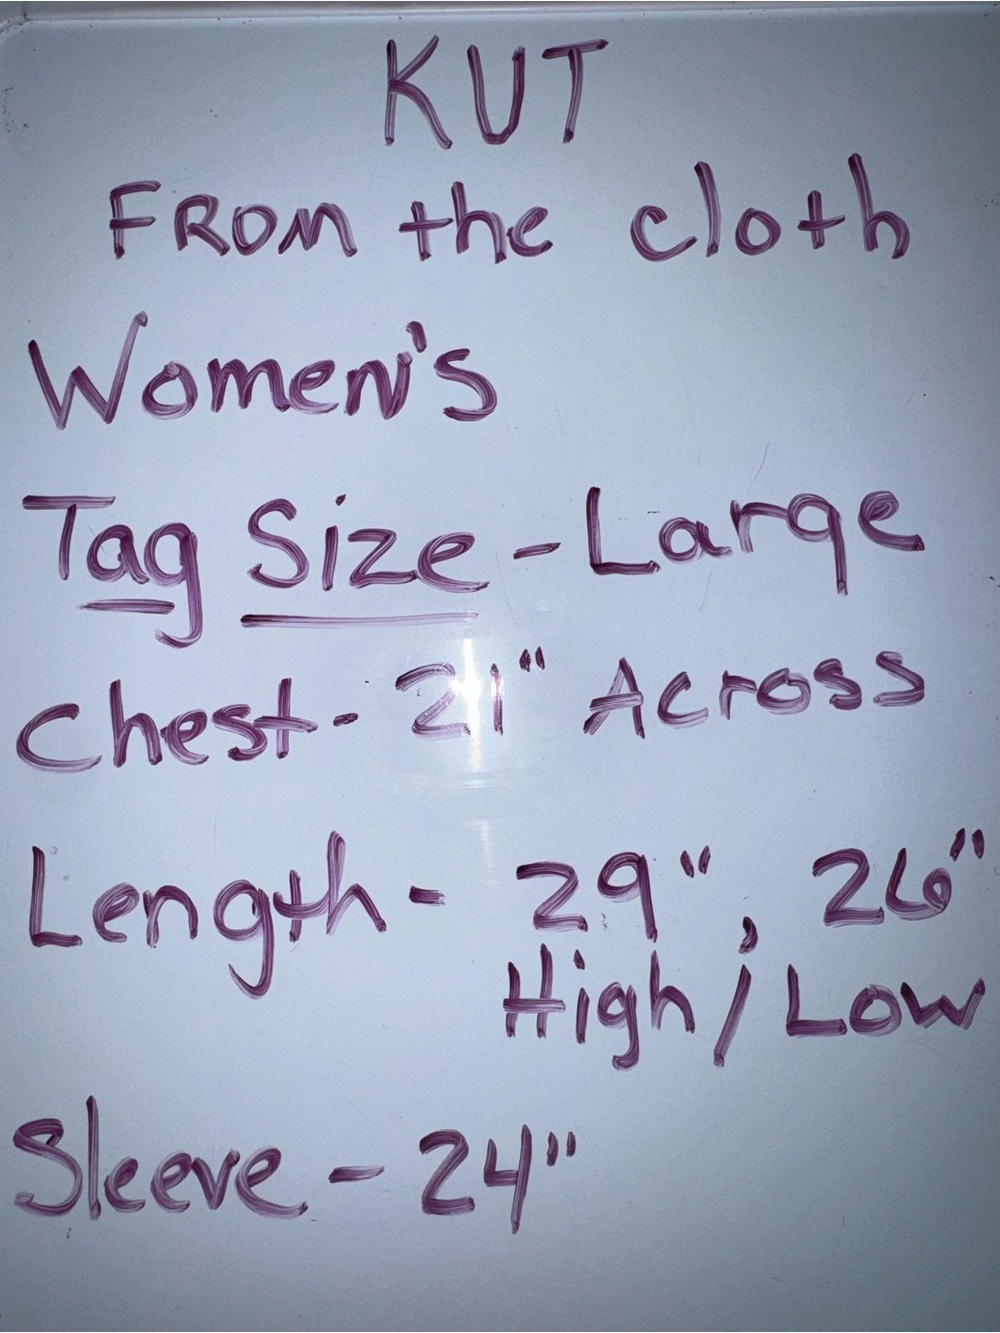 KUT
FROM the cloth
Women's
Tag Size - Large
Chest - 21" Across
Length - 29", 26"
High / Low
Sleeve - 24"